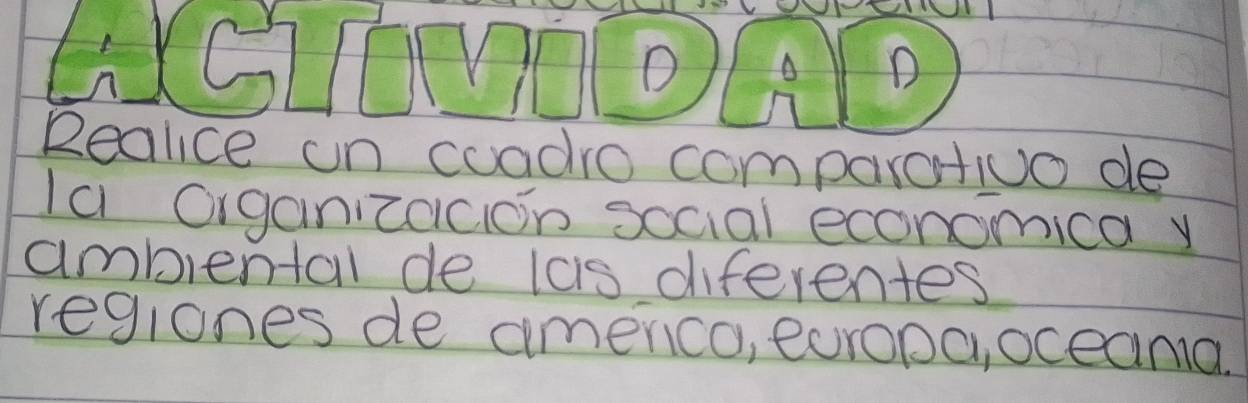 ACTIVIDAD
Realice un cuadro comparativo de
la organización social económica y
ambiental de las diferentes
regiones de américa, europa, oceania.